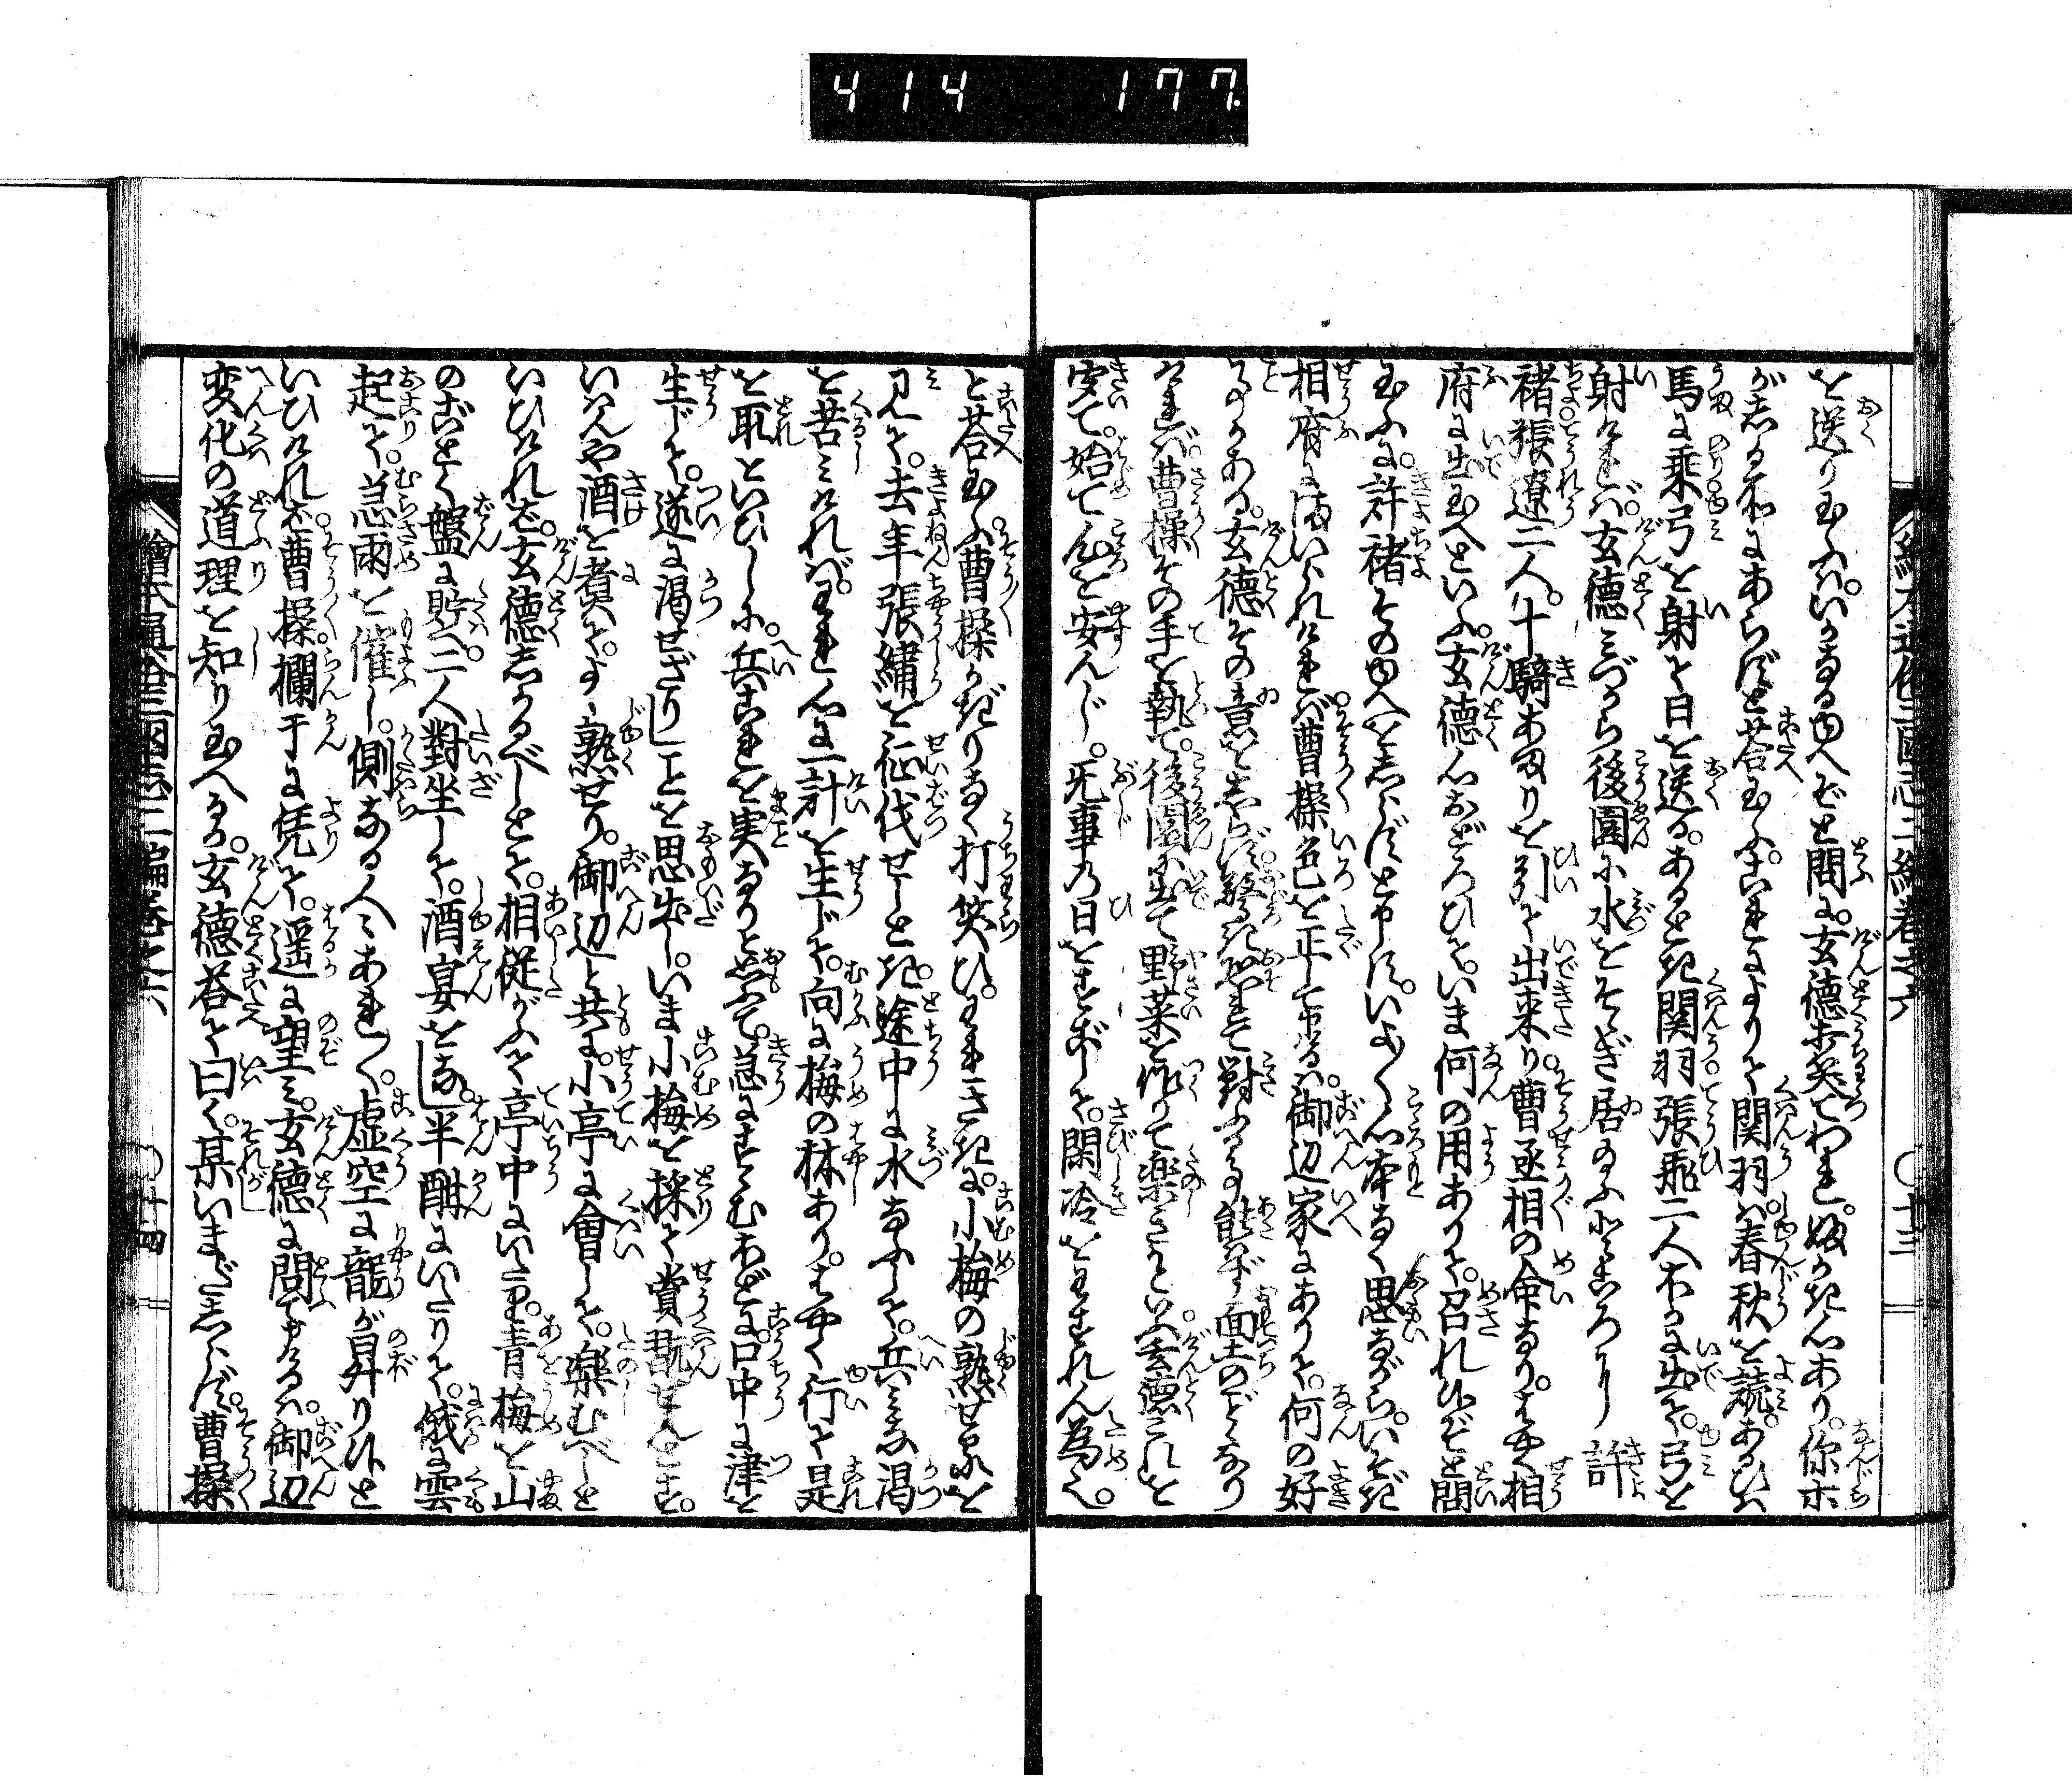 414 177
絵本通俗三國志二編巻之六 〇十三
を送り玉ふハいかなるゆへぞと問に。玄徳打笑てわれ。ふかき心あり。你ホ
がしる所にあらずと荅玉ふ。これによりて関羽ハ春秋を読。あるひハ
馬に乘弓を射て日を送る。あるとき関羽張飛二人ホカに出て。弓を
射けれバ。玄徳ミづから後園に水をそゝぎ居玉ふ所に 許
褚張遼二人。十騎あまりを引て出来り。曹丞相の命なり。はやく相
府に出玉へといふ。玄徳心おどろひて。いま何の用ありて。召れ候ぞと問
玉ふに。許褚そのゆへをしらずと申す。いよ〳〵心本なく思ながら。いそぎ
相府にまいられけれバ曹操色を正して申るハ。御辺家にありて。何の好
ことかある。玄徳その意をしらず驚き恐れて對ふる事能ず面土のごとくなり
けれバ曹操その手を執て。後園に出て野菜を作りて楽きかといふ玄徳これを
安て。始て心を安んじ。无事乃日をすごして。閑冷をわすれん為也。
と荅玉ふ曹操かぎりなく打笑ひ。われさきに。小梅の熟せるを
見て。去年張繍を征伐せしとき。途中に水なふして。兵ミな渇
を苦ミけれバ。われ心に一計を生じて。向に梅の林あり。はやく行て是
を取といひしに。兵これを実なりと思て。急にすゝむほどに。口中に津を
生じて。遂に渇せざりしことを思出し。いま小梅を採て賞翫せんとす。
いんや酒を煮て。よく熟せり。御辺と共に。小亭に會して。楽むべしと
いひけれバ。玄徳しかるべしとて。相従がふて亭中にいたり。青梅を山
のごとく盤に貯へ。二人對坐して。酒宴をなし。半酣にいたりて。俄に雲
起て。急雨を催し。側なる人〻あれ〳〵。虚空に龍が昇り候と
いひけれバ曹操欄干に凭て。遥に望ミ。玄徳に問て申けるハ。御辺
変化の道理を知り玉へるか。玄徳荅て曰く。某いまだしらず。曹操
繪本通俗三國志二編巻之六 〇十四